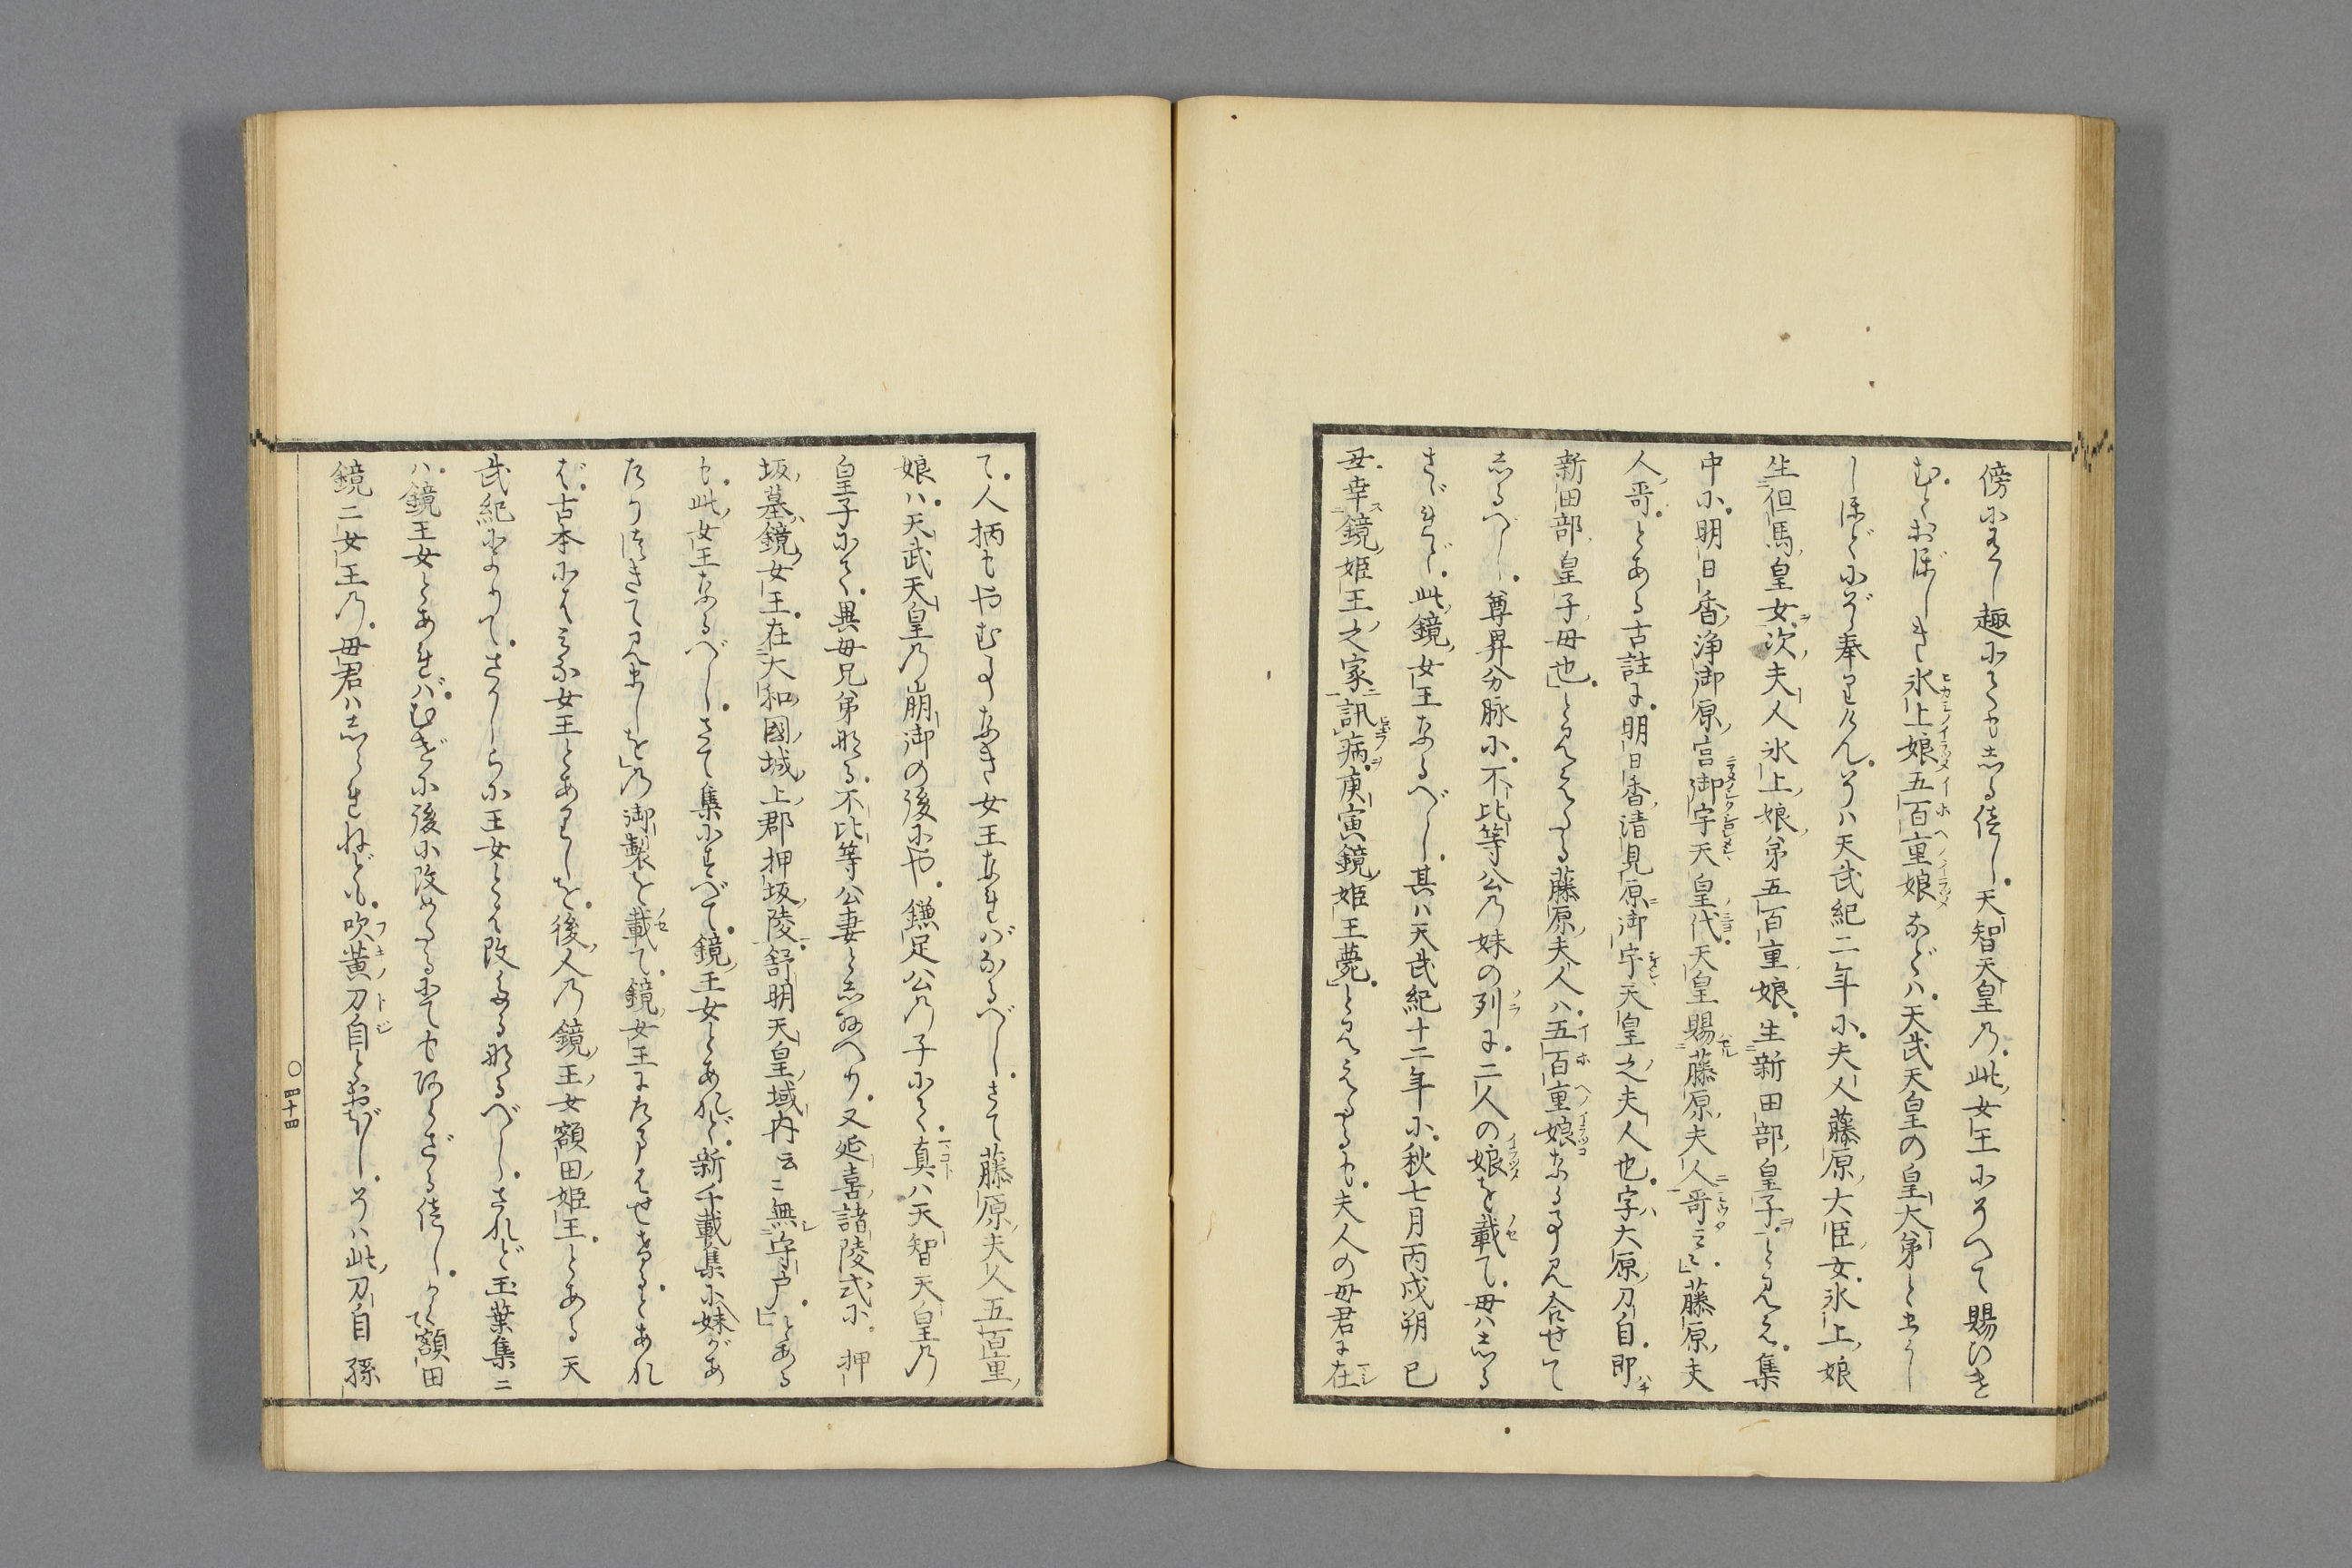 傍にありし趣にても志る偖し。天智天皇乃。此女王にそへて賜ひき
む。とおぼしき氷上娘五百重娘などハ。天武天皇の皇大弟とましゝ
しほどにぞ奉りけん。そハ天武紀二年に。夫人藤原大臣女氷上娘
生但馬皇女。次夫人氷上娘弟五百重娘。生新田部皇子。と見え。集
中に。明日香浄御原宮御宇天皇代。天皇賜藤原夫人哥云々」藤原夫
人哥。とある古註に。明日香清見原御宇天皇之夫人也。字大原刀自。即
新田部皇子母也」と見えたる藤原夫人ハ。五百重娘なる事見合せて
志るべし。尊昇分脉に。不比等公乃妹の列に。二人の娘を載て。母ハ志る
さゞれど。此鏡女王なるべし。其ハ天武紀十二年に。秋七月丙戌朔己
丑。幸鏡姫王之家訊病。庚寅鏡姫王薨」と見えたるも。夫人の母君に在
て。人柄もやむ事なき女王なれバなるべし。さて藤原夫人五百重
娘ハ。天武天皇乃崩御の後にや。鎌足公乃子にて。真ハ天智天皇乃
皇子にて。異母兄弟那る。不比等公妻と志給へり。又延喜諸陵式に。押
坂墓鏡女王。在大和國城上郡押坂陵。舒明天皇域内云々無守戸」とある
も。此女王なるべし。さて集にすべて。鏡王女とあれど。新千載集に妹があ
たりつきて見ましを」乃御製を載て。鏡女王にたまはせける。とあれ
ば。古本にはみな女王とありしを。後人乃鏡王女額田姫王。とある天
武紀によりて。さかしらに王女とは改多る那るべし。されど玉葉集ニ
ハ。鏡王女とあれバ。むげに後に改めたるにても阿らざる偖し。かく額田
鏡二女王乃。母君ハ志られねども。吹黄刀自とおぼし。そハ此刀自孫
○四十四